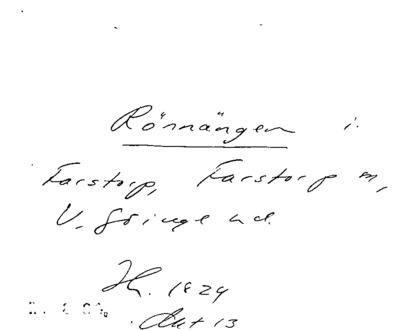 Rörnängen i.
Farstorp, Farstorp m,
V. Göinge hd.
Hr. 1824
Akt 13